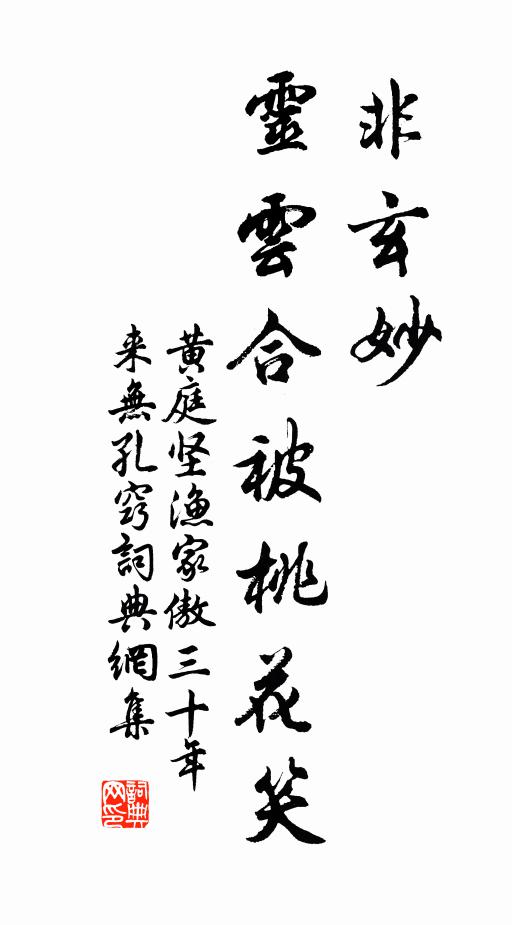 非玄妙
靈雲合被桃花笑
黄庭坚漁家傲三十年
来無孔竅詞典網集
詞典
网印